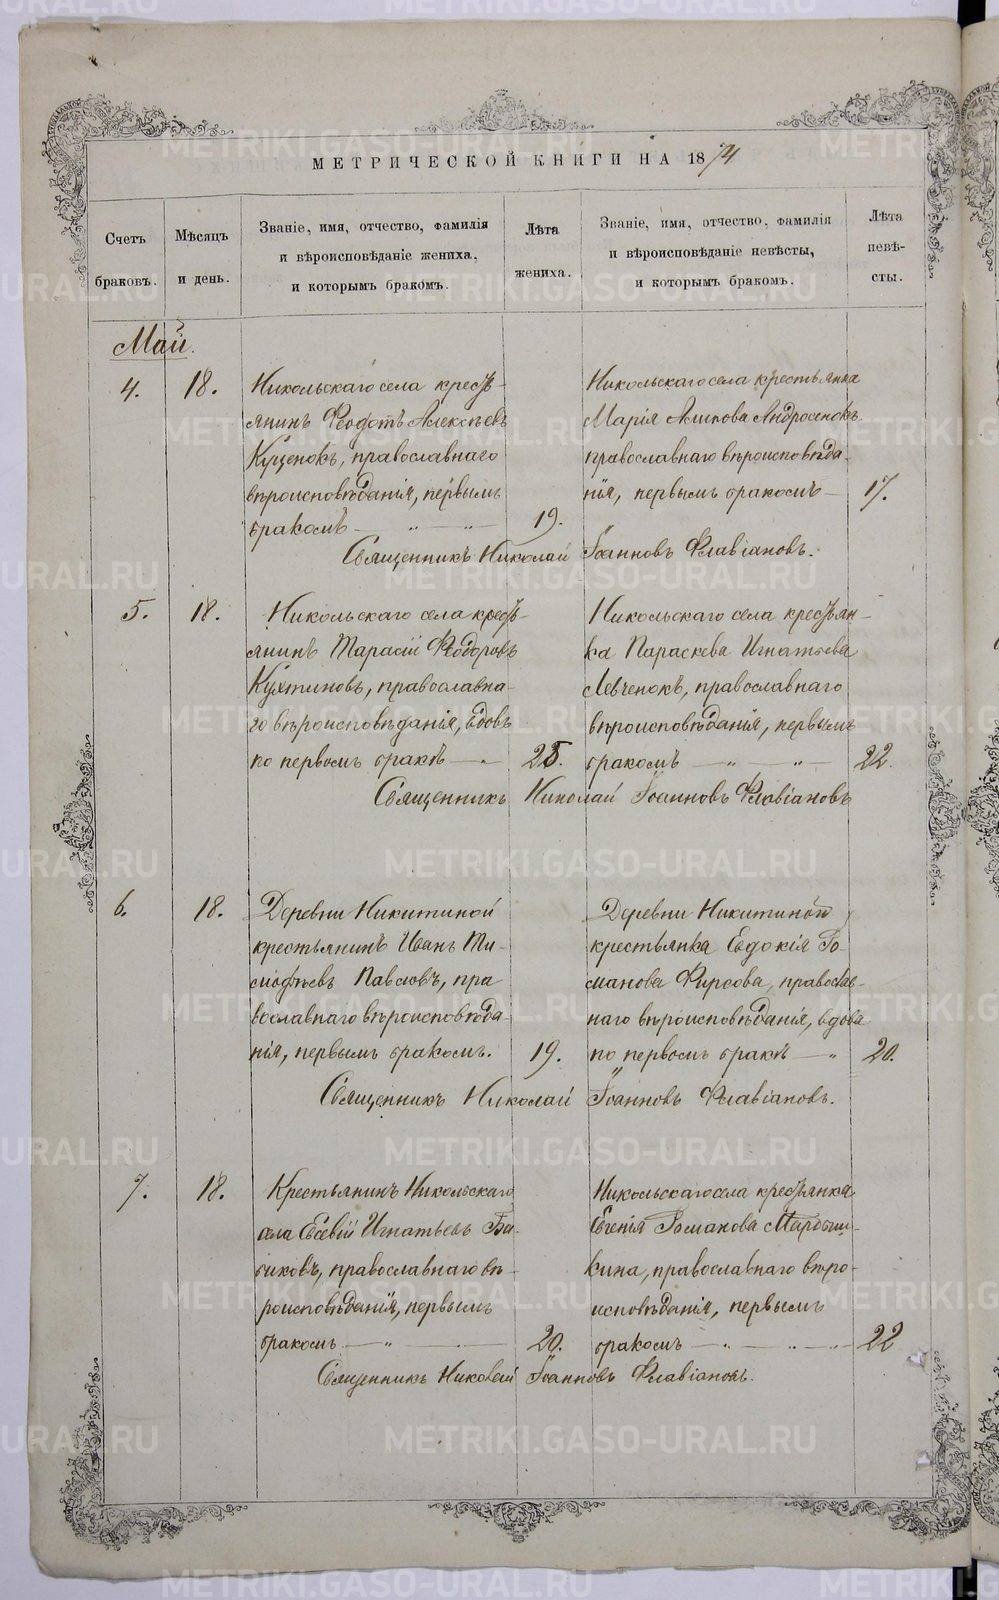 МЕТРИЧЕСКОЙ КНИГИ НА 1874
Счетъ
браковъ.
Мѣсяцъ
и день.
Званіе, имя, отчество, фамилія
и вѣроисповѣданіе жениха,
и которымъ бракомъ.
Лѣта
жениха.
Званіе, имя, отчество, фамилія
и вѣроисповѣданіе невѣсты,
и которымъ бракомъ.
Лѣта
невѣ-
сты.
Май.
4.
18.
Никольскаго села кресть-
янинъ Феодотъ Алексѣевъ
Куценокъ, православнаго
вѣроисповѣданія, первымъ
бракомъ — „ — „ —
19.
Никольскаго села крестьянка
Марія Андросенокъ
православнаго вѣроисповѣда-
нія, первымъ бракомъ —
17.
Священникъ Николай Іоанновъ Флавіановъ.
5.
18.
Никольскаго села кресть-
янинъ Тарасій Ѳеодоровъ
Кухтиновъ, православна-
го вѣроисповѣданія, вдовъ
по первомъ бракѣ — „
25.
Никольскаго села крестьян-
ка Параскева Игнатьева
Левченокъ, православнаго
вѣроисповѣданія, первымъ
бракомъ — „ — „ —
22.
Священникъ Николай Іоанновъ Флавіановъ
6.
18.
Деревни Никитиной
крестьянинъ Иванъ Ти-
моѳѣевъ Павловъ, пра
вославнаго вѣроисповѣда-
нія, первымъ бракомъ.
19.
Деревни Никитиной
крестьянка Евдокія Ро-
манова Фирсова, православ-
наго вѣроисповѣданія, вдова
по первомъ бракѣ — „
20.
Священникъ Николай Іоанновъ Флавіановъ.
7.
18.
Крестьянинъ Никольскаго
села Евсевій Игнатьевъ Би-
биковъ, православнаго вѣ-
роисповѣданія, первымъ
бракомъ — „ —
20.
Никольскаго села крестьянка
Евгенія Романова Мартыш-
кина, православнаго вѣро-
исповѣданія, первымъ
бракомъ — „ — „ —
22
Священникъ Николай Іоанновъ Флавіановъ.
METRIKI.GASO-URAL.RU